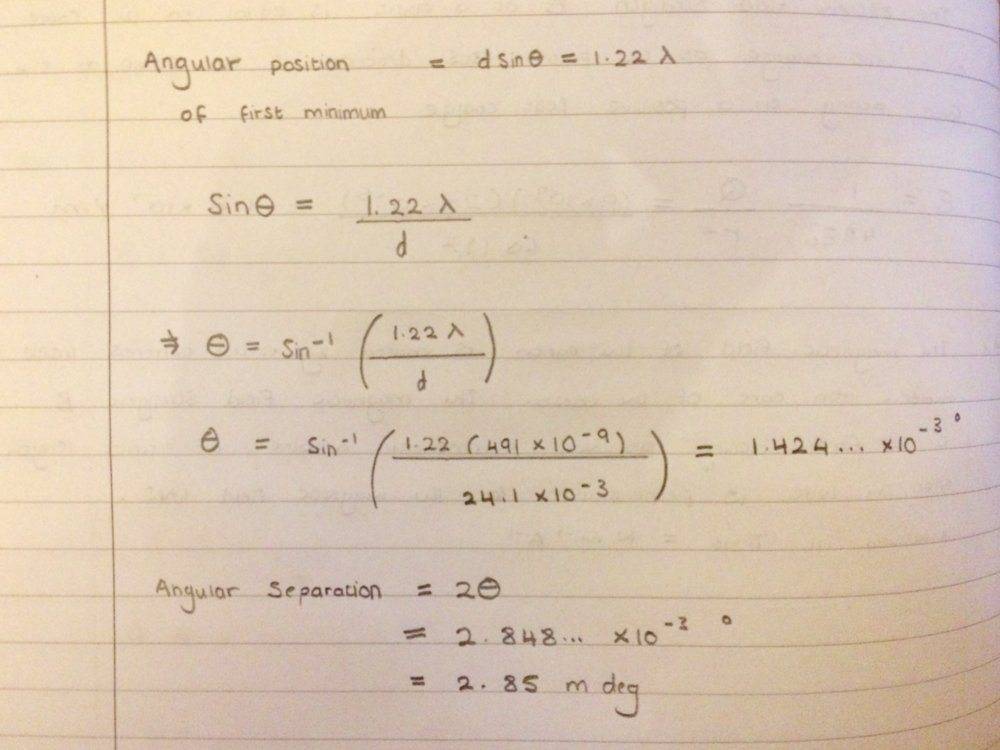 Angular position = d sinθ = 1.22 λ
of first minimum
Sinθ = 1.22 λ / d
⇒ θ = Sin⁻¹ (1.22 λ / d)
θ = Sin⁻¹ (1.22 (491 × 10⁻⁹) / 24.1 × 10⁻³) = 1.424... × 10⁻³ °
Angular Separation = 2θ
= 2.848... × 10⁻³ °
= 2.85 m deg